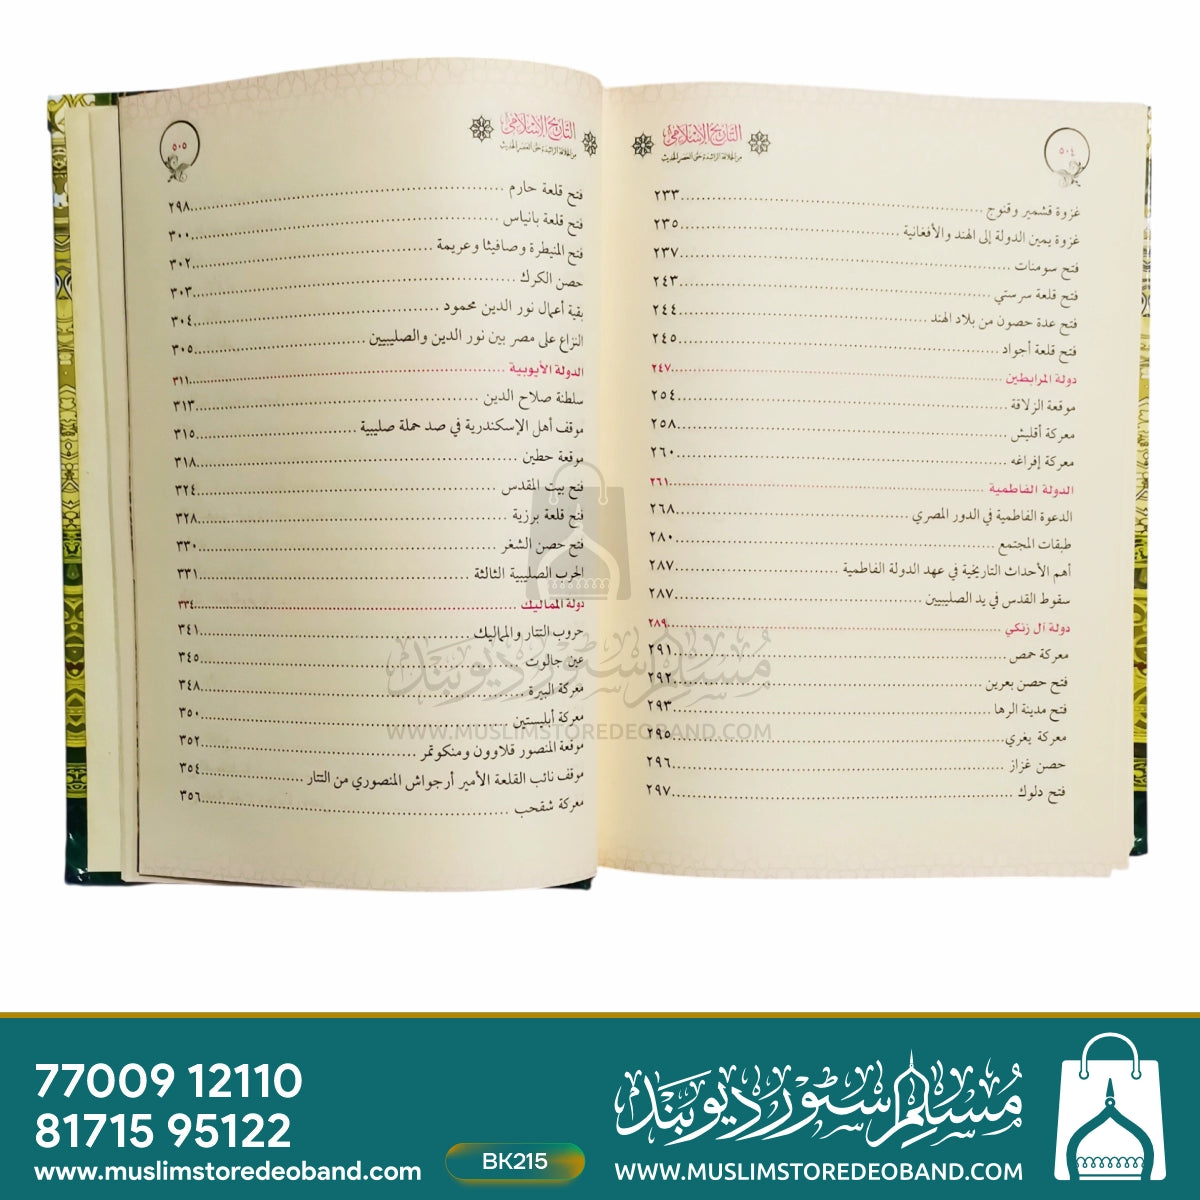 ٥٠٤
التاريخ الإسلامي
من الخلافة الراشدة حتى العصر الحديث
غزوة قشمير وقنوج ٢٣٣
غزوة يمين الدولة إلى الهند والأفغانية ٢٣٥
فتح سومنات ٢٣٧
فتح قلعة سرستي ٢٤٣
فتح عدة حصون من بلاد الهند ٢٤٤
فتح قلعة أجواد ٢٤٥
دولة المرابطين ٢٤٧
موقعة الزلاقة ٢٥٤
معركة أقليش ٢٥٨
معركة إفراغه ٢٦٠
الدولة الفاطمية ٢٦١
الدعوة الفاطمية في الدور المصري ٢٦٨
طبقات المجتمع ٢٨٠
أهم الأحداث التاريخية في عهد الدولة الفاطمية ٢٨٧
سقوط القدس في يد الصليبيين ٢٨٧
دولة آل زنكي ٢٨٩
معركة حمص ٢٩١
فتح حصن بعرين ٢٩٢
فتح مدينة الرها ٢٩٣
معركة يغري ٢٩٥
حصن غزاز ٢٩٦
فتح دلوك ٢٩٧
التاريخ الإسلامي
من الخلافة الراشدة حتى العصر الحديث
٥٠٥
فتح قلعة حارم ٢٩٨
فتح قلعة بانياس ٣٠٠
فتح المنيطرة وصافيثا وعريمة ٣٠٢
حصن الكرك ٣٠٣
بقية أعمال نور الدين محمود ٣٠٤
النزاع على مصر بين نور الدين والصليبيين ٣٠٥
الدولة الأيوبية ٣١١
سلطنة صلاح الدين ٣١٣
موقف أهل الإسكندرية في صد حملة صليبية ٣١٥
موقعة حطين ٣١٨
فتح بيت المقدس ٣٢٤
فتح قلعة برزية ٣٢٨
فتح حصن الشغر ٣٣٠
الحرب الصليبية الثالثة ٣٣١
دولة المماليك ٣٣٤
حروب التتار والمماليك ٣٤١
عين جالوت ٣٤٥
معركة البيرة ٣٤٨
معركة أبليستين ٣٥٠
موقعة المنصور قلاوون ومنكوتمر ٣٥٢
موقف نائب القلعة الأمير أرجواش المنصوري من التتار ٣٥٤
معركة شقحب ٣٥٦
مسلم سٹور دیوبند
WWW.MUSLIMSTOREDEOBAND.COM
77009 12110
81715 95122
www.muslimstoredeoband.com
BK215
مسلم سٹور دیوبند
WWW.MUSLIMSTOREDEOBAND.COM